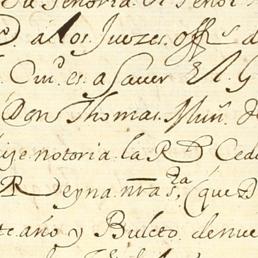 Señoria el Señor
a los Juezes offs d
Cui.es a Saver El y
Don Thomas Muñ. de
ije notoria la Rl Cedu
Reyna nra sra (que D
te año y Buleto de nue